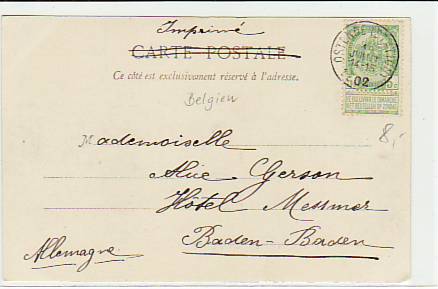 Imprimé
CARTE POSTALE
Ce côté est exclusivement réservé à l'adresse.
Belgien
8,-
Mademoiselle
Alice Gerson
Hôtel Messmer
Baden-Baden
Allemagne
02